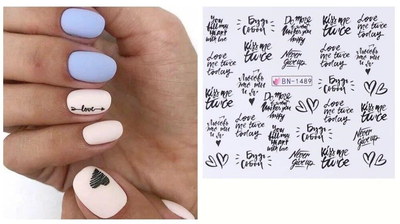 love
Будь
Собой
Do more
of what
makes you
happy
Kiss me
twice
Love
me twice
today
Love
me twice
today
Never
give up
BN-1489
Kiss me
twice
Love
me twice
today
Do more
of what
makes you
happy
Будь
Собой
Kiss me
twice
Love
me twice
today
Never
give up
Love
me twice
today
Будь
Собой
Never
give up
Kiss me
twice